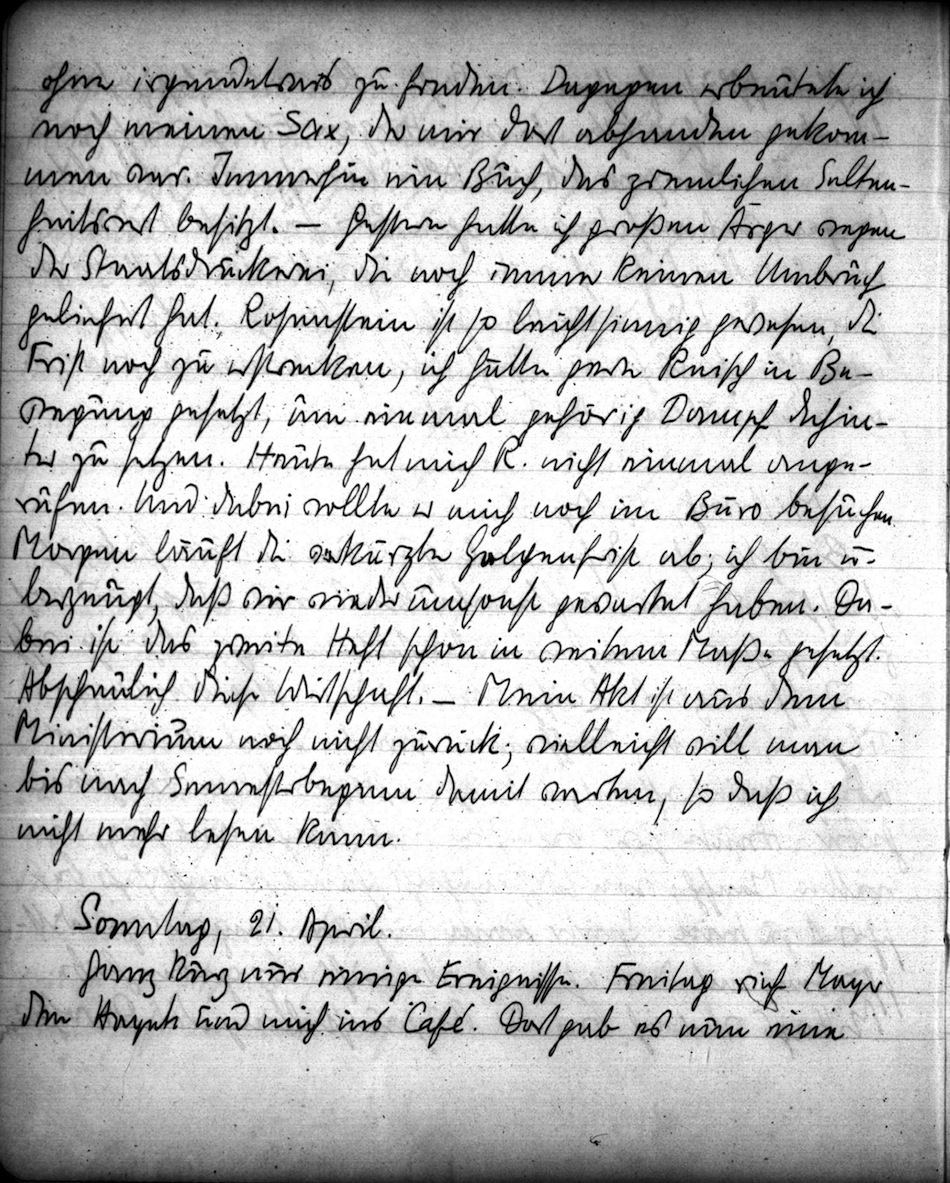 ohne irgendetwas zu finden. Dagegen erbeutete ich
noch meinen Sax, der mir dort abhanden gekom-
men war. Immerhin ein Buch, das ziemlichen Selten-
heitswert besitzt. — Gestern hatte ich großen Ärger wegen
der Staatsdruckerei, die noch immer keinen Umbruch
geliefert hat. Rosenstein ist so leichtsinnig gewesen, die
Frist noch zu erstrecken, ich hätte gern Reisch in Be-
wegung gesetzt, um einmal gehörig Dampf dahin-
ter zu setzen. Heute hat mich R. nicht einmal ange-
rufen. Und dabei wollte er mich noch im Büro besuchen.
Morgen läuft die verkürzte Galgenfrist ab; ich bin ü-
berzeugt, daß wir wieder umsonst gewartet haben. Da-
bei ist das zweite Heft schon in weitem Maße gesetzt.
Abscheulich diese Wirtschaft. — Mein Akt ist aus dem
Ministerium noch nicht zurück; vielleicht will man
bis nach Semesterbeginn damit warten, so daß ich
nicht mehr lesen kann.
Sonntag, 21. April.
Ganz kurz nur einige Ereignisse. Freitag rief Mayer
den Hayek und mich ins Café. Dort gab es nun eine